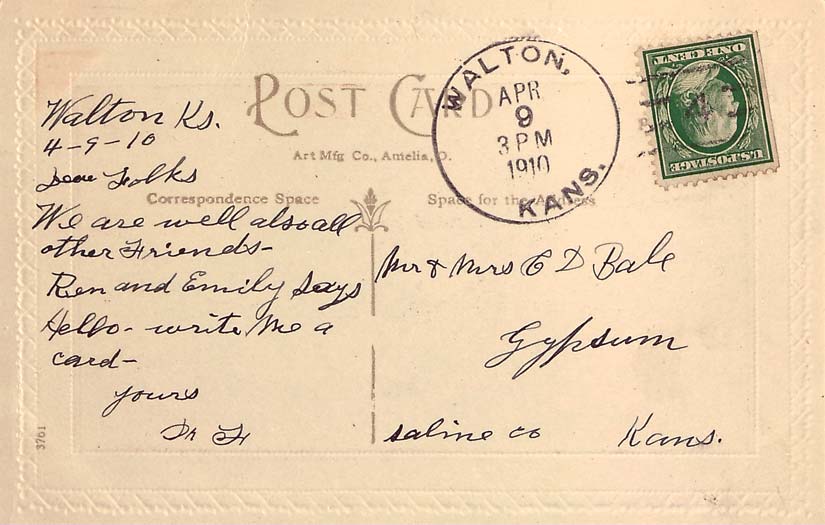 POST CARD
Art Mfg Co., Amelia, O.
Correspondence Space
Space for the Address
WALTON,
APR
9
3 PM
1910
KANS.
ONE CENT
U.S. POSTAGE
Walton Ks.
4-9-10
Dear Folks
We are well also all
other Friends-
Ren and Emily says
Hello- write Me a
card-
yours
Mr & Mrs E D Bale
Gypsum
Saline co Kans.
3761